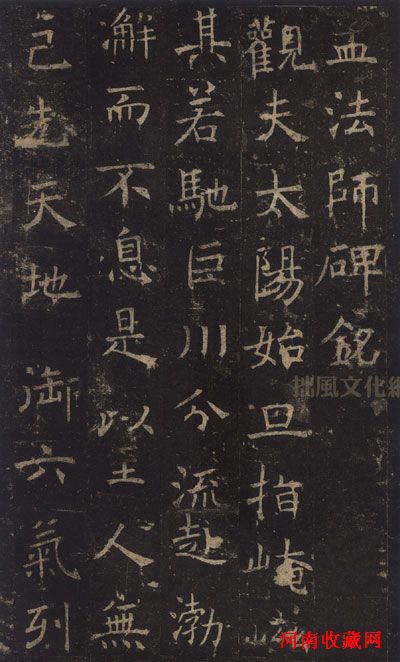 孟法師碑銘
觀夫太陽始旦指崦嵫
其若馳巨川分流赴渤
澥而不息是以至人無
己先天地 御六氣列
拙風文化網
河南收藏网